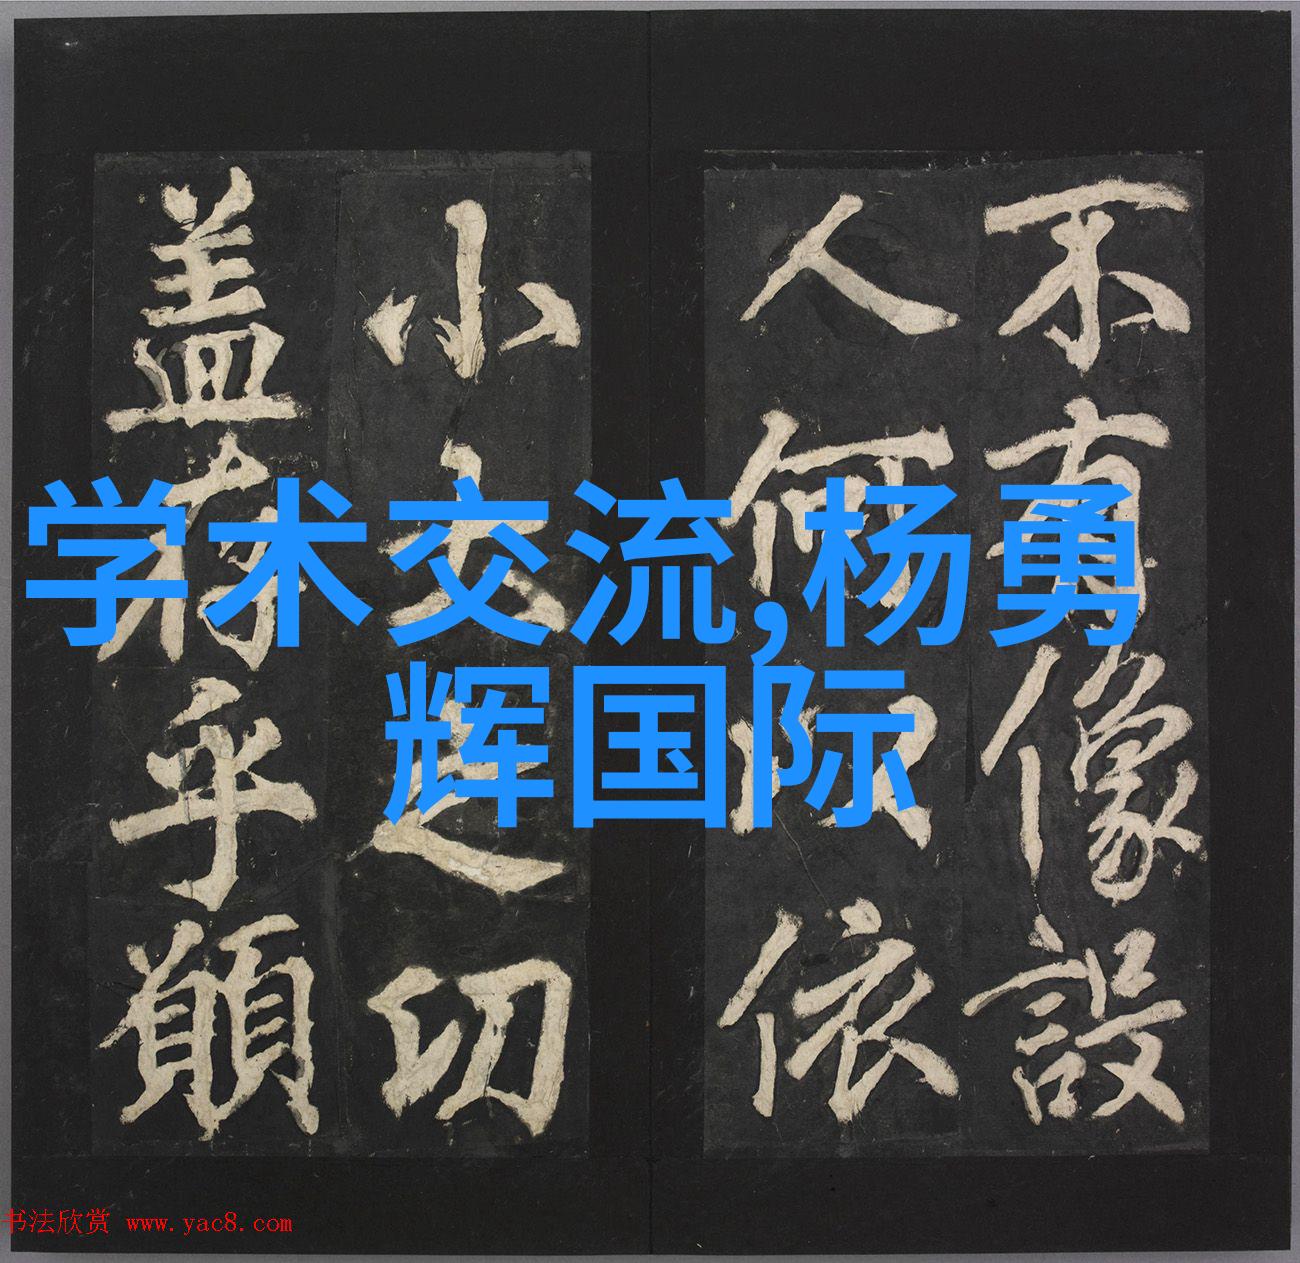 学术交流,杨勇
辉国际
不有像設
人何以依
小大之切
盖乎
书法欣赏 www.yac8.com